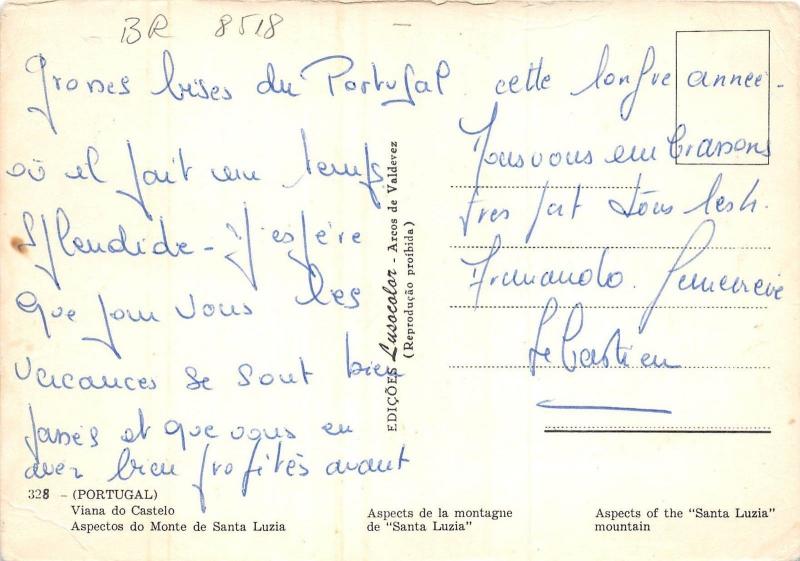 BR 8518
Grosses bises du Portugal
où il fait un temps
splendide - J'espère
que pour vous les
vacances se sont bien
passés et que vous en
avez bien profités avant
cette longue année.
Nous vous embrassons
très fort tous les 4.
Armando. Genevieve
Sebastien
EDIÇÕES Lusocolor - Arcos de Valdevez
(Reprodução proibida)
328 - (PORTUGAL)
Viana do Castelo
Aspectos do Monte de Santa Luzia
Aspects de la montagne
de "Santa Luzia"
Aspects of the "Santa Luzia"
mountain